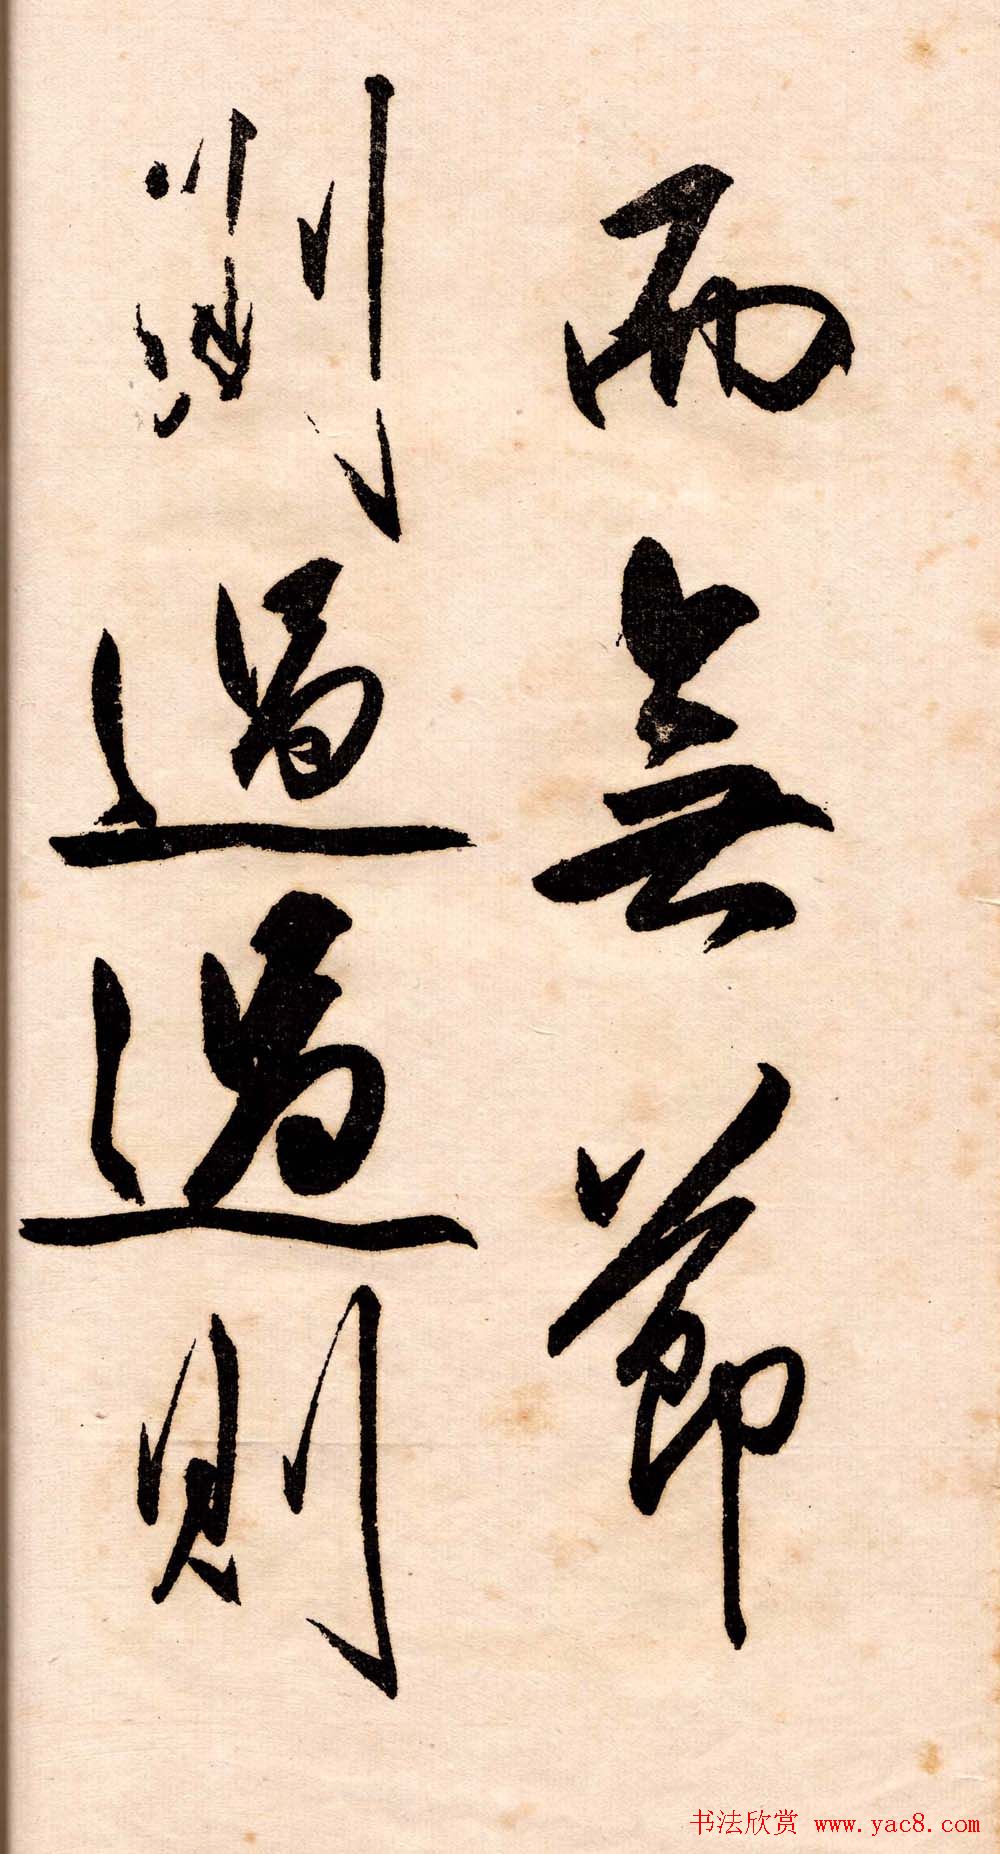 而無節
則過過則
书法欣赏 www.yac8.com